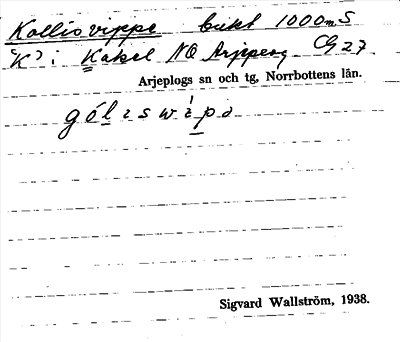 Kallisvippe bukt 1000 m S
"K" i Kakel NO Arjepl 27
Arjeplogs sn och tg, Norrbottens län.
gólɛswìpɔ
Sigvard Wallström, 1938.